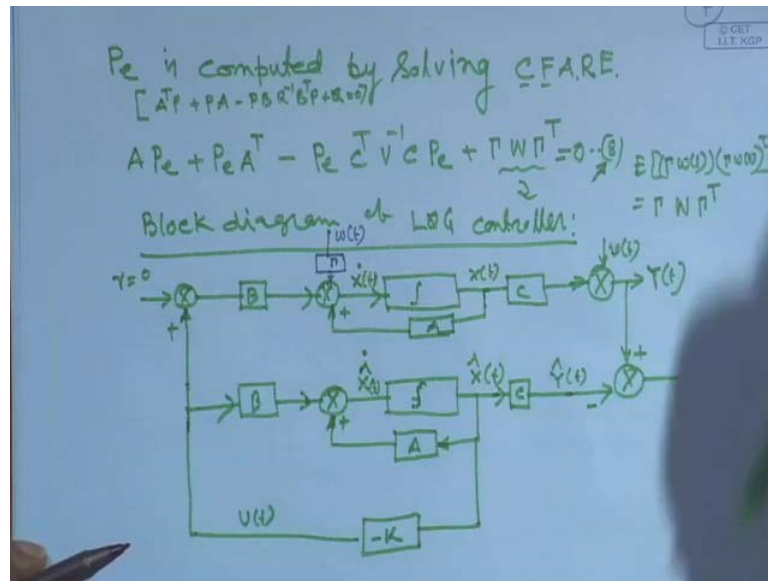 © CET
I.I.T. KGP
Pe is computed by solving C F A.R.E.
[AᵀP + PA - PBR⁻¹BᵀP + Q = 0]
A Pe + Pe Aᵀ - Pe Cᵀ V⁻¹ C Pe + Γ W Γᵀ = 0 --(8)
E[(Γ w(t))(Γ w(t))ᵀ
= Γ W Γᵀ
Block diagram of LQG controller:
w(t)
Γ
v(t)
r=0
B
ẋ(t)
∫
x(t)
C
Y(t)
+
+
A
+
B
∫
x̂(t)
C
Ŷ(t)
-
+
A
U(t)
-K